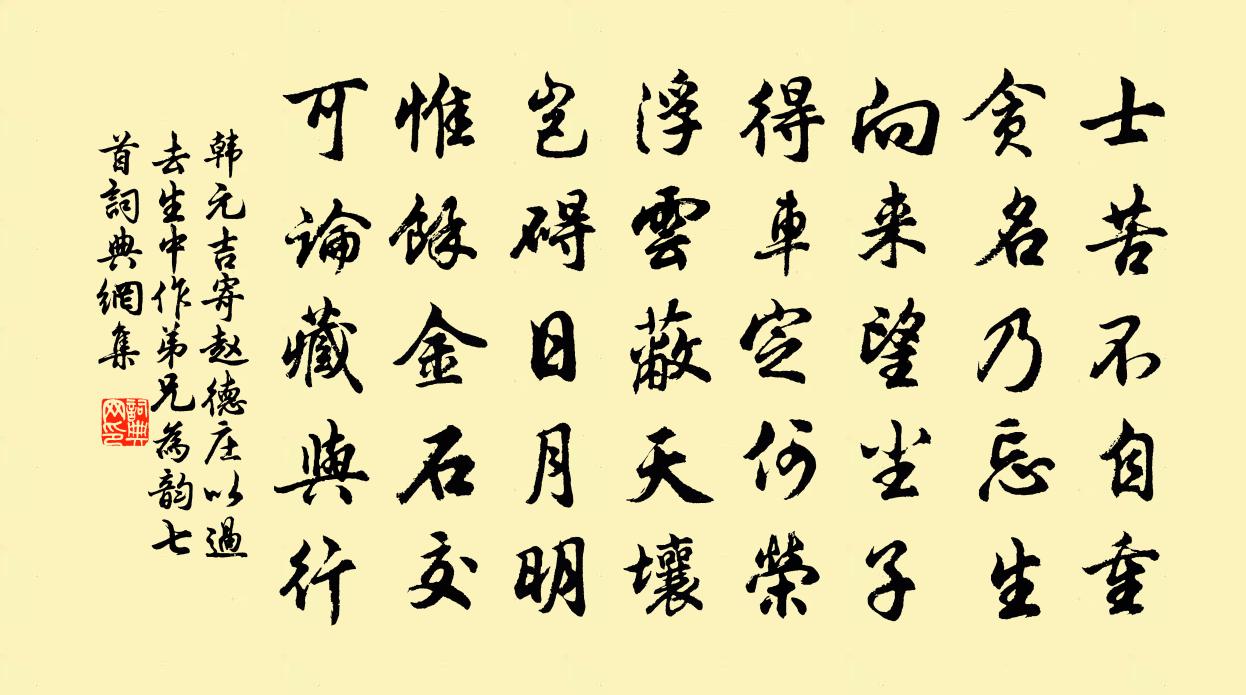 士苦不自重
贪名乃忘生
向来望尘子
得車定何榮
浮雲蔽天壤
岂碍日月明
惟餘金石交
可論藏與行
韩元吉寄赵德庄以過
去生中作弟兄為韵七
首詞典網集
詞典
网印